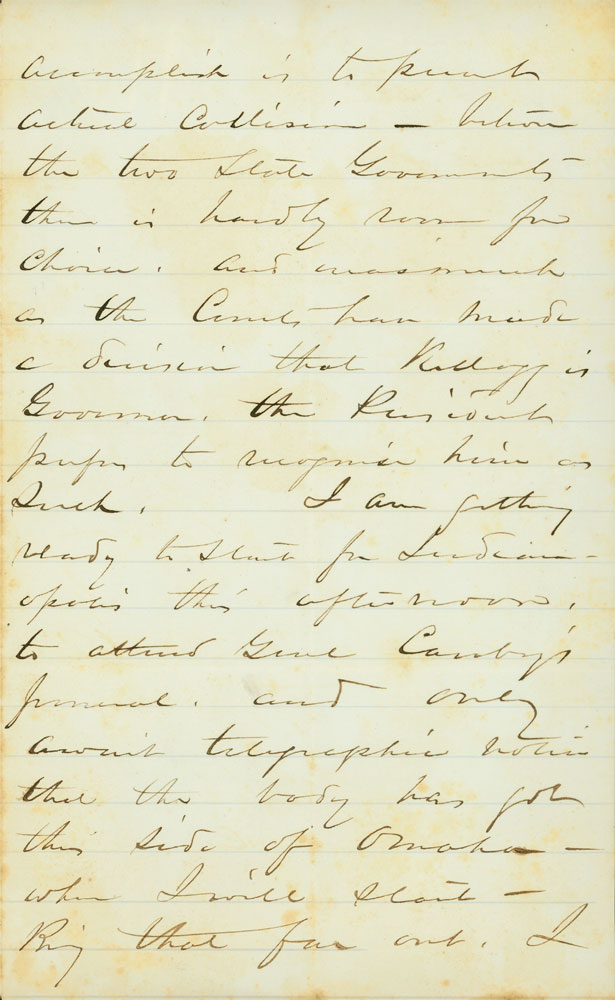 accomplish is to prevent
actual Collision — between
the two State Governments
there is hardly room for
choice. and inasmuch
as the Courts have made
a decision that Kellogg is
Governor. the President
prefers to recognise him as
such. I am getting
ready to start for Indian-
apolis this afternoon.
to attend Genl Canby's
funeral. and only
await telegraphic notice
that the body has got
this side of Omaha —
when I will start —
that far out. I